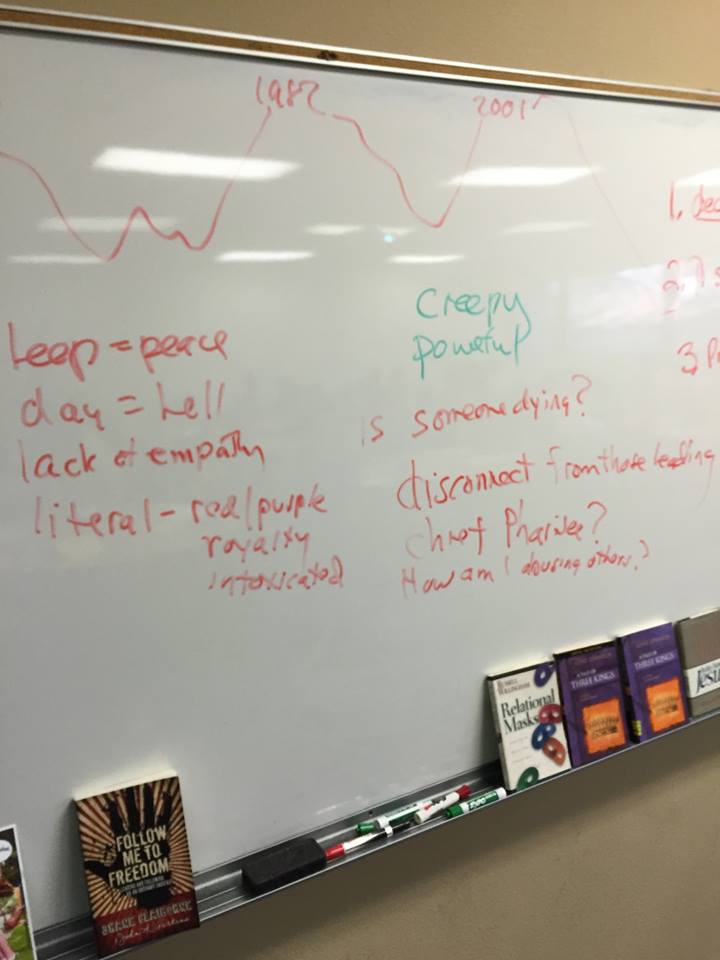 1982
2001
1. dec
2.
3.
Creepy
powerful
keep = peace
day = hell
lack of empathy
literal - red/purple
royalty
intoxicated
Is someone dying?
disconnect from those leading
chief Pharisee?
How am I abusing others?
FOLLOW
ME TO
FREEDOM
SHANE CLAIBORNE
RUSSELL
WILLINGHAM
Relational
Masks
A TALE OF
THREE KINGS
A TALE OF
THREE KINGS
Jesu